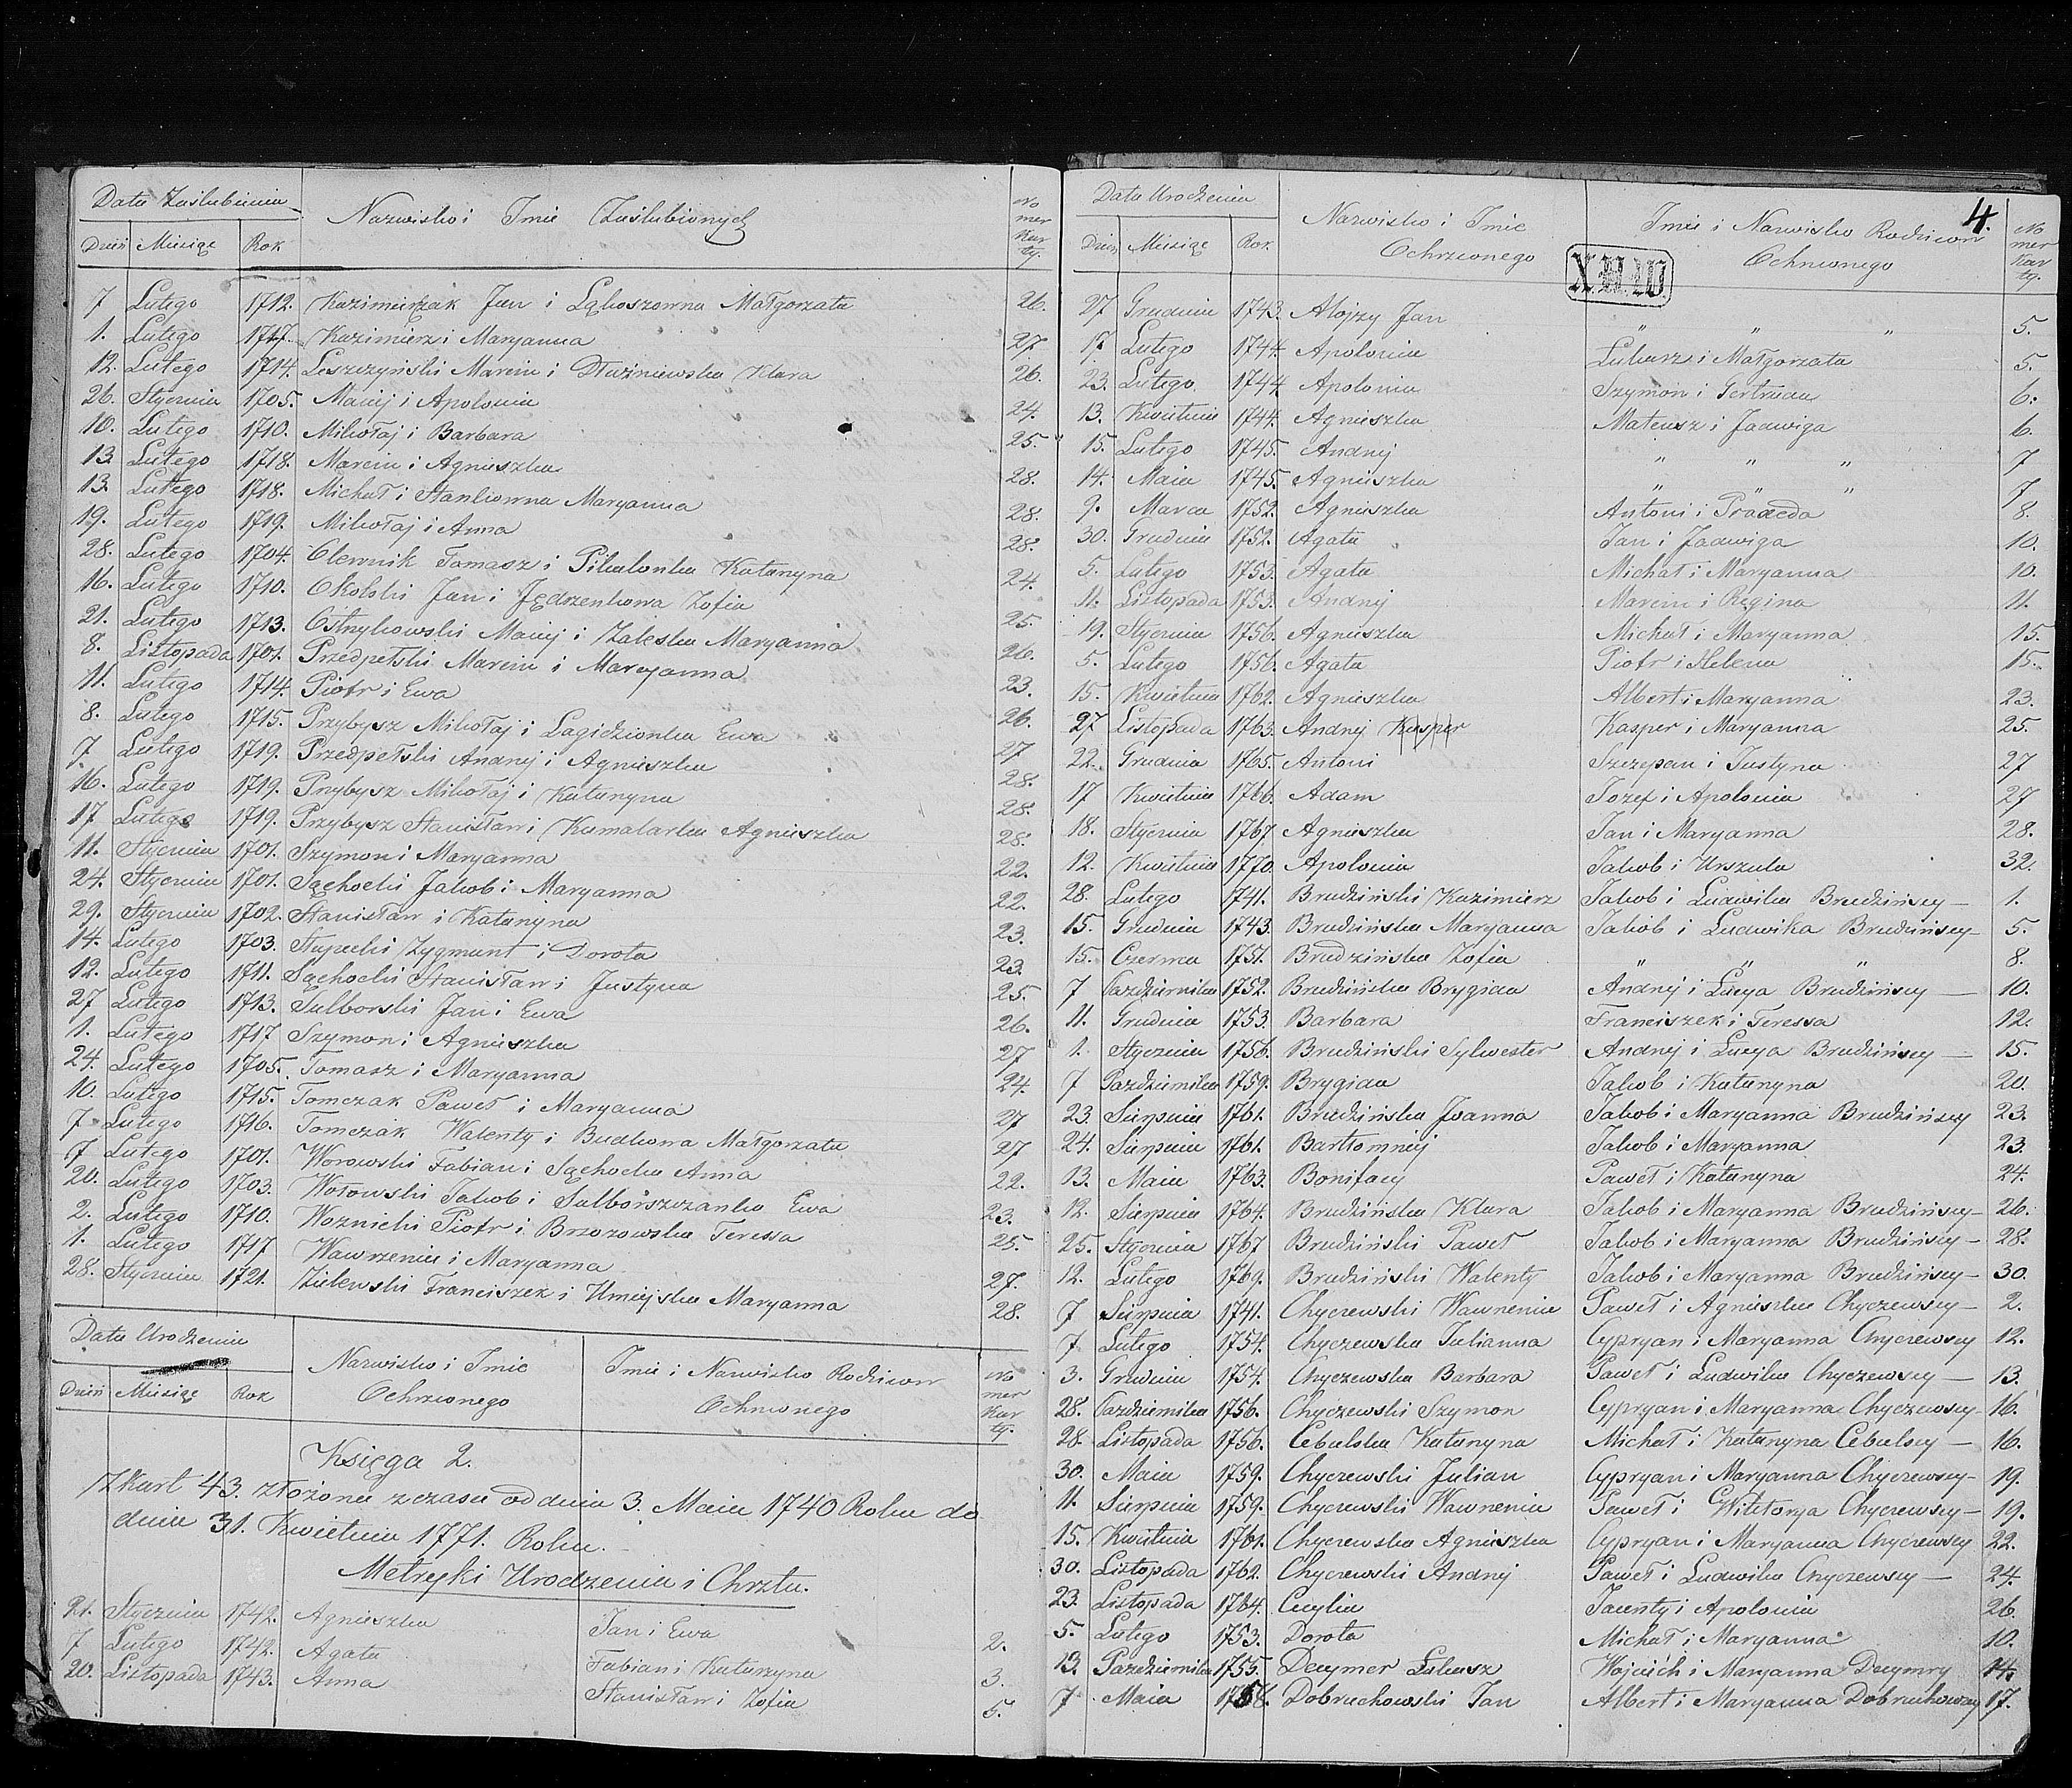 Data Zaślubienia Nazwisko i Imie Zaślubionych No mer Kar ty.
Dzień Miesiąc Rok
7 Lutego 1712. Kazimierzak Jan i Łąkoszowna Małgorzata 26.
1. Lutego 1717. Kazimierz i Maryanna 27
12. Lutego 1714. Leszczyński Marcin i Dłużniewska Klara 26.
26. Stycznia 1705. Maciej i Apolonia 24.
10. Lutego 1710. Mikołaj i Barbara 25.
13. Lutego 1718. Marcin i Agnieszka 28.
13. Lutego 1718. Michał i Stankowna Maryanna 28.
19. Lutego 1719. Mikołaj i Anna 28.
28. Lutego 1704. Olewnik Tomasz i Pikulonka Katarzyna 24.
16. Lutego 1710. Okolski Jan i Jędrzenkowa Zofia 25.
21. Lutego 1713. Ostrzykowski Maciej i Zaleska Maryanna 26.
8. Listopada 1701. Przedpełski Marcin i Maryanna 23.
11. Lutego 1714. Piotr i Ewa 26.
8. Lutego 1715. Przybysz Mikołaj i Lagidzionka Ewa 27
7. Lutego 1719. Przedpełski Andrzej i Agnieszka 28.
16. Lutego 1719. Przybysz Mikołaj i Katarzyna 28.
17 Lutego 1719. Przybysz Stanisław i Kumalarka Agnieszka 28.
11. Stycznia 1701. Szymon i Maryanna 22.
24. Stycznia 1701. Sąchocki Jakob i Maryanna 22.
29. Stycznia 1702. Stanisław i Katarzyna 23.
14. Lutego 1703. Stupecki Zygmunt i Dorota 23.
12. Lutego 1711. Sąchocki Stanisław i Justyna 25.
27 Lutego 1713. Sulborski Jan i Ewa 26.
1. Lutego 1717 Szymon i Agnieszka 27
24. Lutego 1705. Tomasz i Maryanna 24.
10. Lutego 1715. Tomczak Paweł i Maryanna 27
7 Lutego 1716. Tomczak Walenty i Budkowa Małgorzata 27
7 Lutego 1701. Worowski Fabian i Sąchocka Anna 22.
20. Lutego 1703. Wołowski Jakob i Sulborszczanka Ewa 23.
2. Lutego 1710. Woznicki Piotr i Brzozowska Teressa 25.
1. Lutego 1717 Wawrzeniec i Maryanna 27.
28. Stycznia 1721. Zielewski Franciszek i Umiejska Maryanna 28.
Data Urodzenia Nazwisko i Imie Ochrzconego Imie i Nazwisko Rodzicow Ochrzconego No mer Kar ty.
Dzień Miesiąc Rok
Księga 2.
Z kart 43. złożona z czasu od dnia 3. Maia 1740 Roku do
dnia 31. Kwietnia 1771. Roku.
Metryki Urodzenia i Chrztu.
21. Stycznia 1742. Agnieszka Jan i Ewa 2.
7 Lutego 1742. Agata Fabian i Katarzyna 3.
20. Listopada 1743. Anna Stanisław i Zofia 5.
4.
Data Urodzenia Nazwisko i Imie Ochrzconego Imie i Nazwisko Rodzicow Ochrzconego No mer Kar ty.
Dzień Miesiąc Rok
27 Grudnia 1743. Alojzy Jan " " " 5.
17 Lutego 1744. Apolonia Łukasz i Małgorzata 5.
23. Lutego 1744 Apolonia Szymon i Gertruda 6.
13. Kwietnia 1744. Agnieszka Mateusz i Jadwiga 6.
15. Lutego 1745. Andrzej " " " 7
14. Maia 1745. Agnieszka " " " 7
9. Marca 1752. Agnieszka Antoni i Praxeda 8.
30. Grudnia 1752. Agata Jan i Jadwiga 10.
5. Lutego 1753. Agata Michał i Maryanna 10.
11. Listopada 1753. Andrzej Marcin i Regina 11.
19. Stycznia 1756. Agnieszka Michał i Maryanna 15.
5. Lutego 1756. Agata Piotr i Helena 15.
15. Kwietnia 1762. Agnieszka Albert i Maryanna 23.
27 Listopada 1763. Andrzej Kasper Kasper i Maryanna 25.
22. Grudnia 1765. Antoni Szczepan i Justyna 27
17 Kwietnia 1766. Adam Jozef i Apolonia 27
18. Stycznia 1767. Agnieszka Jan i Maryanna 28.
12. Kwietnia 1770. Apolonia Jakob i Urszula 32.
28. Lutego 1741. Brudziński Kazimierz Jakob i Ludwika Brudzińscy — 1.
15. Grudnia 1743. Brudzińska Maryanna Jakob i Ludwika Brudzińscy — 5.
15. Czerwca 1751. Brudzińska Zofia " " " 8.
7 Pazdziernika 1752. Brudzińska Brygida Andrzej i Łucya Brudzińscy — 10.
11. Grudnia 1753. Barbara Franciszek i Teressa 12.
1. Stycznia 1756. Brudziński Sylwester Andrzej i Łucya Brudzińscy — 15.
7 Pazdziernika 1759. Brygida Jakob i Katarzyna 20.
23. Sierpnia 1761. Brudzińska Joanna Jakob i Maryanna Brudzińscy 23.
24. Sierpnia 1761. Bartłomniej Jakob i Maryanna 23.
13. Maia 1763. Bonifacy Paweł i Katarzyna 24.
12. Sierpnia 1764. Brudzińska Klara Jakob i Maryanna Brudzińscy — 26.
25. Stycznia 1767 Brudziński Paweł Jakob i Maryanna Brudzińscy — 28.
12. Lutego 1769. Brudziński Walenty Jakob i Maryanna Brudzińscy — 30.
7 Sierpnia 1741. Chyczewski Wawrzeniec Paweł i Agnieszka Chyczewscy — 2.
7 Lutego 1754. Chyczewska Julianna Cypryan i Maryanna Chyczewscy 12.
3. Grudnia 1754. Chyczewska Barbara Paweł i Ludwika Chyczewscy — 13.
28. Pazdziernika 1756. Chyczewski Szymon Cypryan i Maryanna Chyczewscy 16.
28. Listopada 1756. Cebulska Katarzyna Michał i Katarzyna Cebulscy — 16.
30. Maia 1759. Chyczewski Julian Cypryan i Maryanna Chyczewscy — 19.
11. Sierpnia 1759. Chyczewski Wawrzeniec Paweł i Wiktorya Chyczewscy — 19.
15. Kwietnia 1761. Chyczewska Agnieszka Cypryan i Maryanna Chyczewscy 22.
30. Listopada 1762. Chyczewski Andrzej Paweł i Ludwika Chyczewscy — 24.
23. Listopada 1764. Cecylia Jacenty i Apolonia 26.
5. Lutego 1753. Dorota Michał i Maryanna 10.
13. Pazdziernika 1755. Decymer Łukasz Wojciech i Maryanna Decymry 14.
7 Maia 1758. Dobruchowski Jan Albert i Maryanna Dobruchowscy 17.